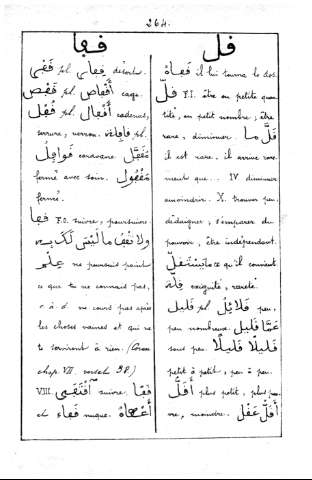 264.
فقا
فقى pl. فقافى désertes.
قفص pl. أقفاص cage.
قفل pl. أقفال cadenas,
serrure, verrou. قافلة pl.
قوافل caravane. مقفّل
fermé avec soin. مقفول
fermé.
قفا F.O. suivre, poursuivre
ولا تقفا ما ليس لك به
علم ne poursuis point
ce que tu ne connais pas,
c. à d. ne cours pas après
les choses vaines et qui ne
te serviront à rien. (Coran
chap. VII. verset 38.)
VIII. اقتفى suivre. قفا
et قفاء nuque. أقفاه
قل
قفاه il lui tourna le dos.
قلّ F.I. être en petite quan
tité, en petit nombre, être
rare, diminuer. قلّ ما
il est rare. il arrive rare
ment que... IV diminuer
amoindrir. X. trouver peu
dédaigner, s'emparer du
pouvoir, être indépendant.
ما يستقلّ ce qu'il convient
قلّة exiguité, rareté.
قليل pl. قلائل peu,
peu nombreux. عمّا قليل
sous peu. قليلا قليلا
petit à petit, peu à peu.
أقلّ plus petit, plus ra
re, moindre. أقلّ عقل